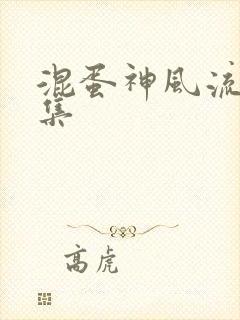 混蛋神风流
集
高虎